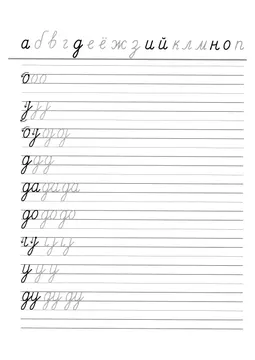 а б в г д е ё ж з и й к л м н о п
о о о
у у у
д д д
да да да
до до до
у у у
ду ду ду